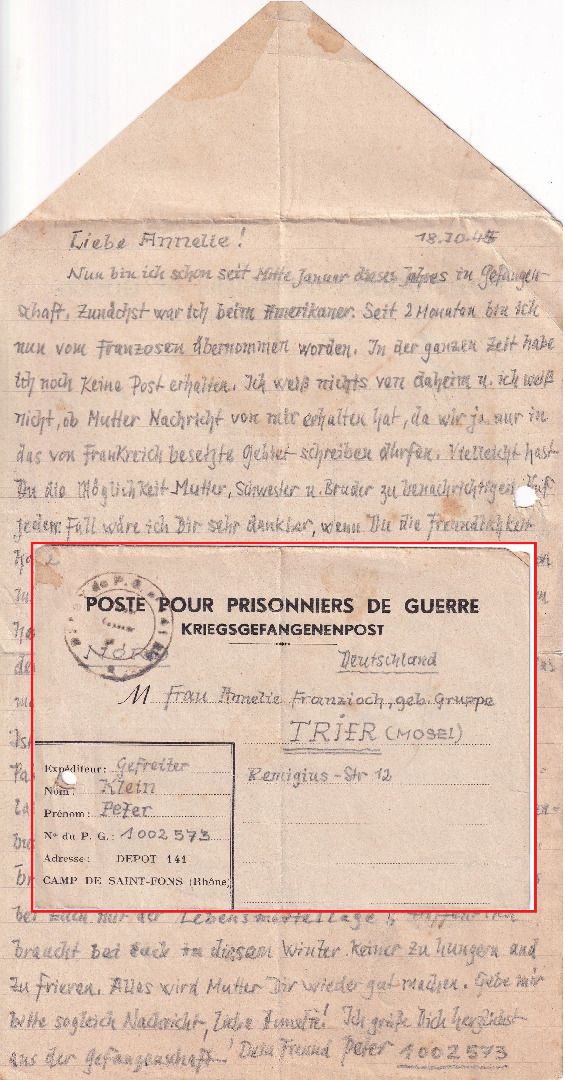 Liebe Annelie! 18.10.45
Nun bin ich schon seit Mitte Januar dieses Jahres in Gefangen-
schaft. Zunächst war ich beim Amerikaner. Seit 2 Monaten bin ich
nun vom Franzosen übernommen worden. In der ganzen Zeit habe
ich noch keine Post erhalten. Ich weiß nichts von daheim u. ich weiß
nicht, ob Mutter Nachricht von mir erhalten hat, da wir ja nur in
das von Frankreich besetzte Gebiet schreiben dürfen. Vielleicht hast
Du die Möglichkeit Mutter, Schwester u. Bruder zu benachrichtigen. Auf
jedem Fall wäre ich Dir sehr dankbar, wenn Du die Freundlichkeit
POSTE POUR PRISONNIERS DE GUERRE
KRIEGSGEFANGENENPOST
Nord
Deutschland
M Frau Annelie Franzioch, geb. Gruppe
TRIER (MOSEL)
Remigius-Str 12
Expéditeur: Gefreiter
Nom: Klein
Prénom: Peter
No du P. G.: 1002573
Adresse: DEPOT 141
CAMP DE SAINT-FONS (Rhône)
bei Euch mit der Lebensmittellage
braucht bei Euch in diesem Winter keiner zu hungern und
zu frieren. Alles wird Mutter Dir wieder gut machen. Gebe mir
bitte sogleich Nachricht, liebe Annelie! Ich grüße Dich herzlichst
aus der Gefangenschaft! Dein Freund Peter 1002573